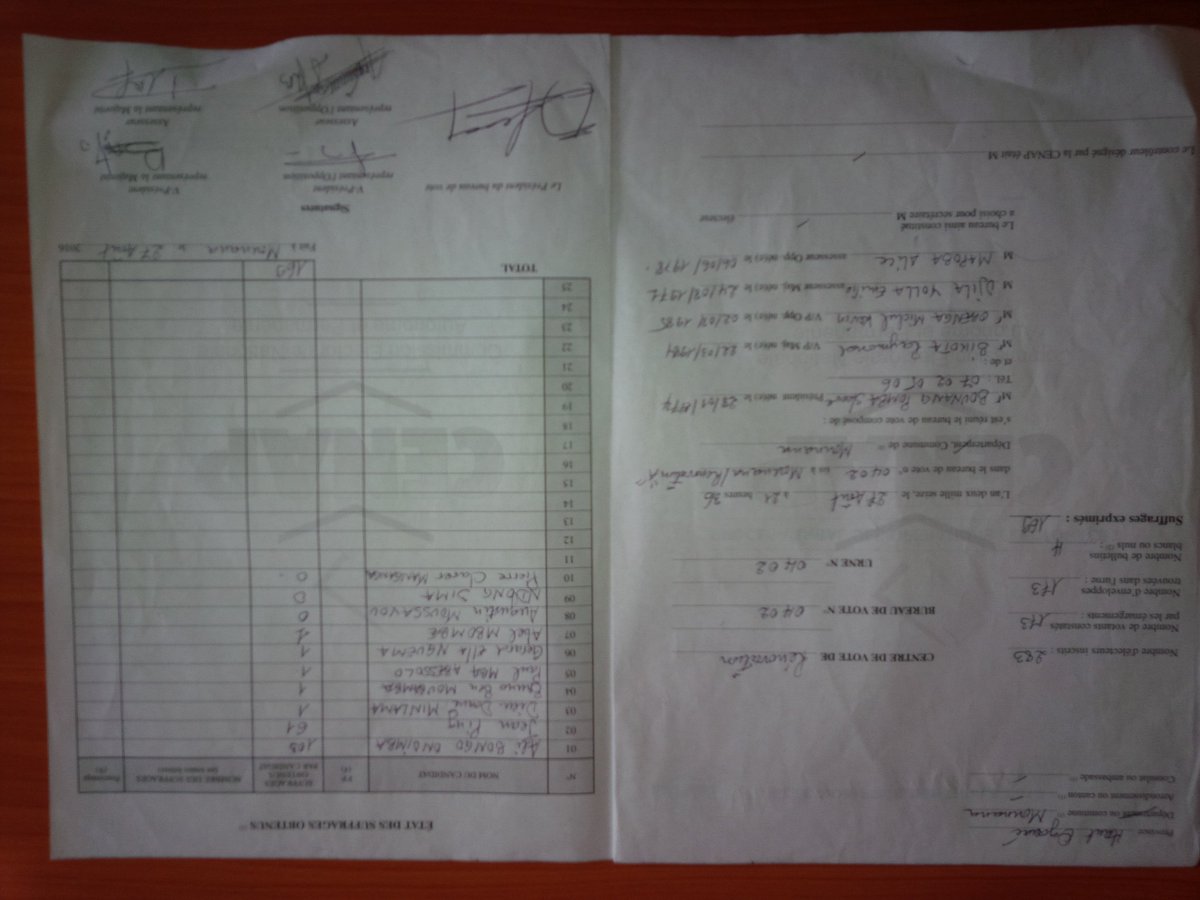 Province Haut Ogooué
Département ou commune (1) Mounana
Arrondissement ou canton (1)
Consulat ou ambassade (1)
Nombre d'électeurs inscrits : 283
Nombre de votants constatés
par les émargements : 173
Nombre d'enveloppes
trouvées dans l'urne : 173
Nombre de bulletins
blancs ou nuls (2) : 4
Suffrages exprimés : 169
CENTRE DE VOTE DE Rénovation
BUREAU DE VOTE N° 0402
URNE N° 0402
L'an deux mille seize, le 27 Août à 21 heures 36
dans le bureau de vote n° 0402 sis à Mounana/Rénovation
Département, Commune de (1) Mounana
s'est réuni le bureau de vote composé de :
Mr BOUNANG Président né(e) le
Tél : 07 02 05 06
et de :
Mr BIKOTA Raymond V/P Maj. né(e) le 22/03/1984
Mr Michel Kevin V/P Opp. né(e) le 02/08/1985
M DJILA YOLLA Emilie assesseur Maj. né(e) le 24/08/1972
M MABOBA Alice assesseur Opp. né(e) le 06/06/1978.
Le bureau ainsi constitué
a choisi pour secrétaire M électeur
Le contrôleur désigné par la CENAP était M
ÉTAT DES SUFFRAGES OBTENUS
N° NOM DU CANDIDAT SUFFRAGES OBTENUS PAR CANDIDAT NOMBRE DES SUFFRAGES (en toutes lettres) Pourcentage (%)
01 Ali BONGO ONDIMBA 103
02 Jean Ping 61
03 Dieu Donné MINLAMA 1
04 Bruno Ben MOUBAMBA 1
05 Paul MBA ABESSOLO 1
06 Gérard Ella NGUEMA 1
07 Abel MBOMBE 1
08 Augustin MOUSSAVOU 0
09 NDONG SIMA 0
10 Pierre Claver 0
11
12
13
14
15
16
17
18
19
20
21
22
23
24
25
TOTAL 169
Fait à Mounana le 27 Août 2016
Signatures
Le Président du bureau de vote
V-Président
représentant l'Opposition
V-Président
représentant la Majorité
Assesseur
représentant l'Opposition
Assesseur
représentant la Majorité